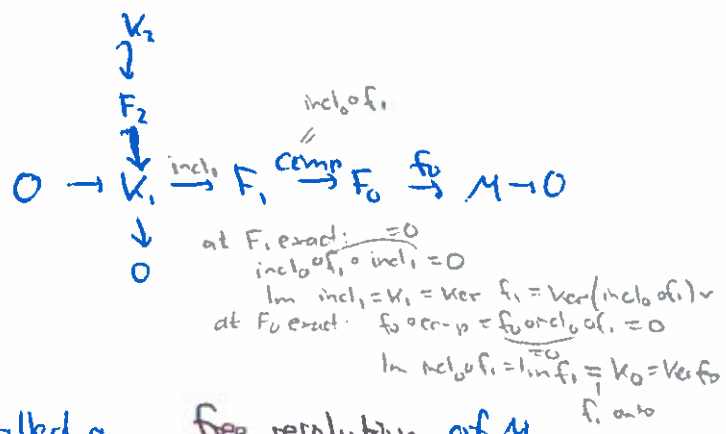 K₂
F₂
incl₀∘f₁
=
0 → K₁ incl₁→ F₁ comp→ F₀ f₀→ M → 0
0
at F₁ exact: =0
incl₀∘f₁∘incl₁ = 0
Im incl₁ = K₁ = ker f₁ = ker(incl₀∘f₁) ✓
at F₀ exact: f₀∘comp = f₀∘incl₀∘f₁ = 0
=0
Im incl₀∘f₁ = Im f₁ = K₀ = Ker f₀
f₁ onto
called a free resolution of M